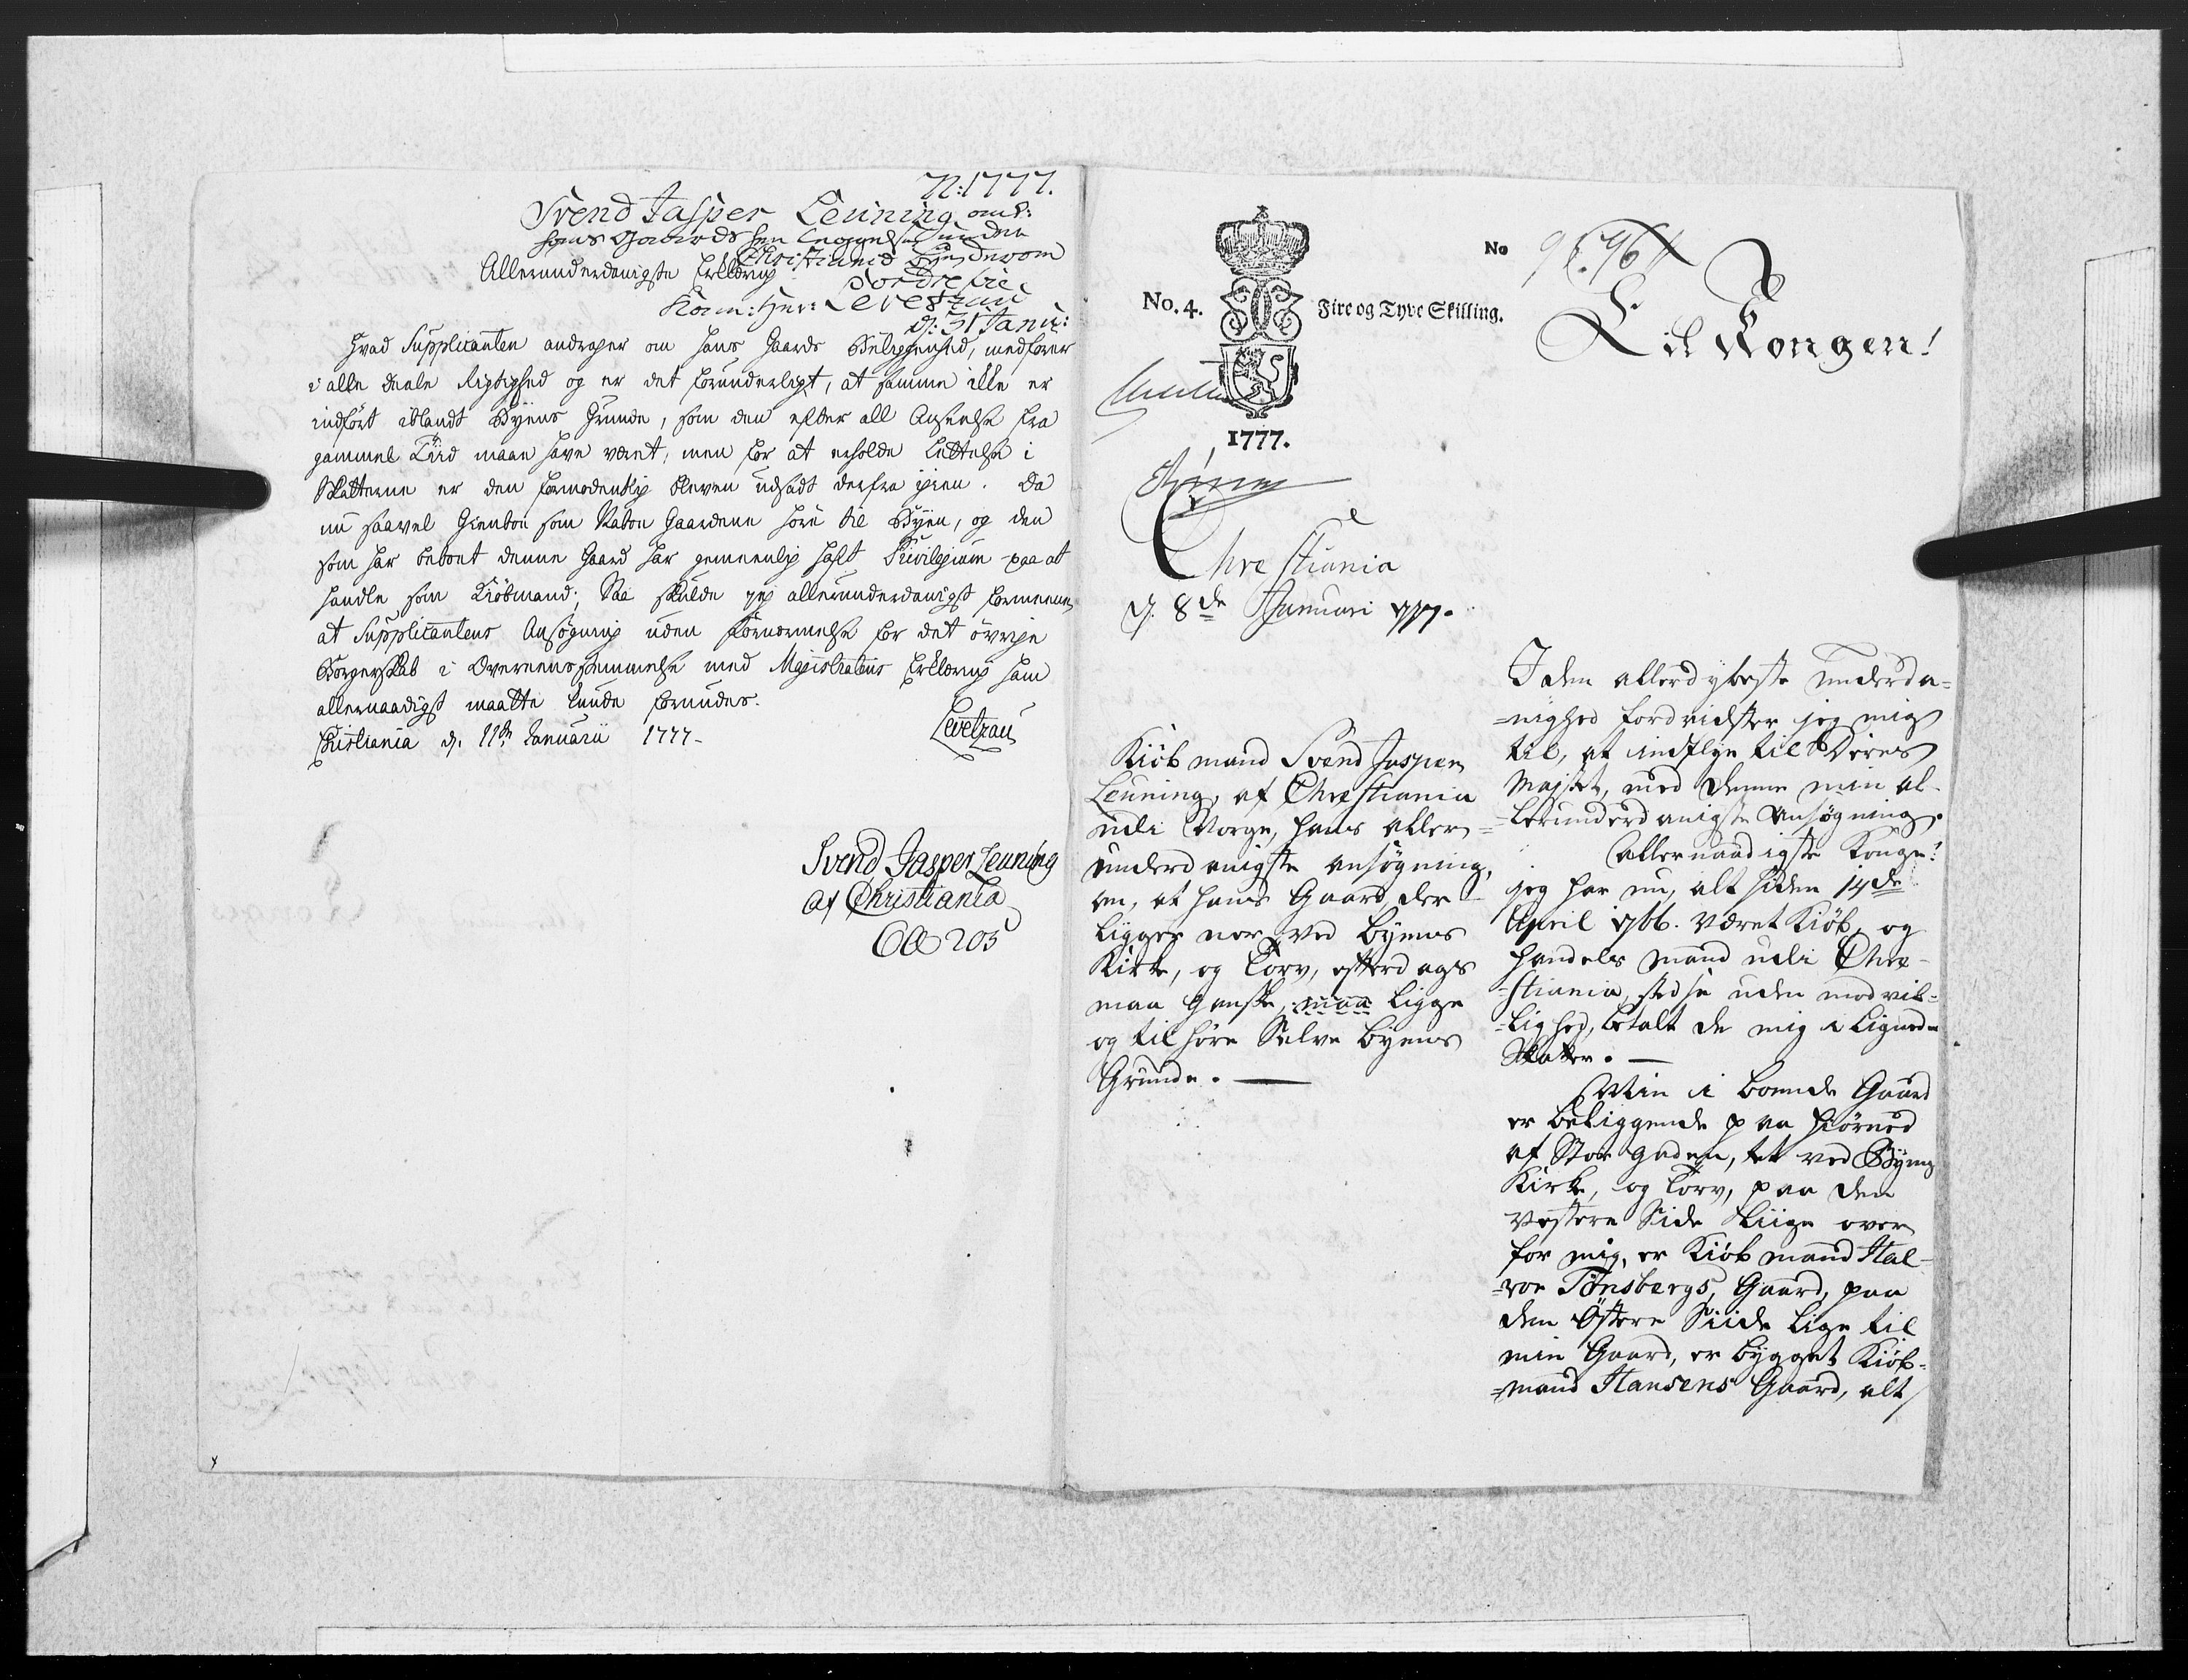 N: 1777.
Svend Jasper Leuning om
hans Gaards hen læggelse under
Christiania Byes
Allerunderdanigste Erklæring
Kam: Her: Levetzau
d: 31 Janu:
Hvad Supplicanten andrager om hans Gaards Beliggenhed, medfører
i alle deele Rigtighed og er det forunderligt, at samme ikke er
indført iblandt Byens Grunde, som den efter all Anseelse fra
gammel Tiid maae have været, men for at erholde Lettelse i
Skatterne er den formodentlig bleven udsadt derfra igien. Da
nu saavel Gienboe som Naboe Gaardene høre til Byen, og den
som har beboet denne Gaard har gemeenlig haft Privilegium paa at
handle som Kiøbmand; Saa skulde jeg allerunderdanigst formeene,
at Supplicantens Ansøgning uden Fornærmelse for det øvrige
Borgerskab i Overeensstemmelse med Magistratens Erklæring ham
allernaadigst maatte kunde forundes.
Christiania d. 11te Januarii 1777.
Levetzau
Svend Jasper Leuning
af Christiania
205
No
No. 4.
Fire og Tyve Skilling.
1777.
Til Kongen!
Christiania
d. 8de Januari 1777.
Kiøbmand Svend Jasper
Leuning, af Christiania
udi Norge, hans aller=
underdanigste ansøgning,
om, at hans Gaard, der
ligger nær ved Byens
Kirke, og Torv, efterdags
maa ganske, maa ligge
og tilhøre Selve Byens
Grunde.
I den allerdybeste underda=
=nighed fordrister jeg mig
til, at indflye til Deres
Majstt, med denne min al=
=lerunderdanigste Ansøgning.
Allernaadigste Konge!
jeg har nu, alt siden 14de
April 1766. været Kiøb, og
handels mand udi Chri=
=stiania, stedse uden modvil=
=lighed, betalt de mig i Lignede
Skatter.
Min i boende Gaard
er beliggende paa Hiørned
af Stor gaden, tet ved Byens
Kirke, og Torv, paa den
Vestere Side Liige over
for mig, er Kiøbmand Hal=
=vor Tønsbergs, Gaard, paa
den Østere Siide lige til
min Gaard, er bygget Kiøb=
=mand Hansens Gaard, alt